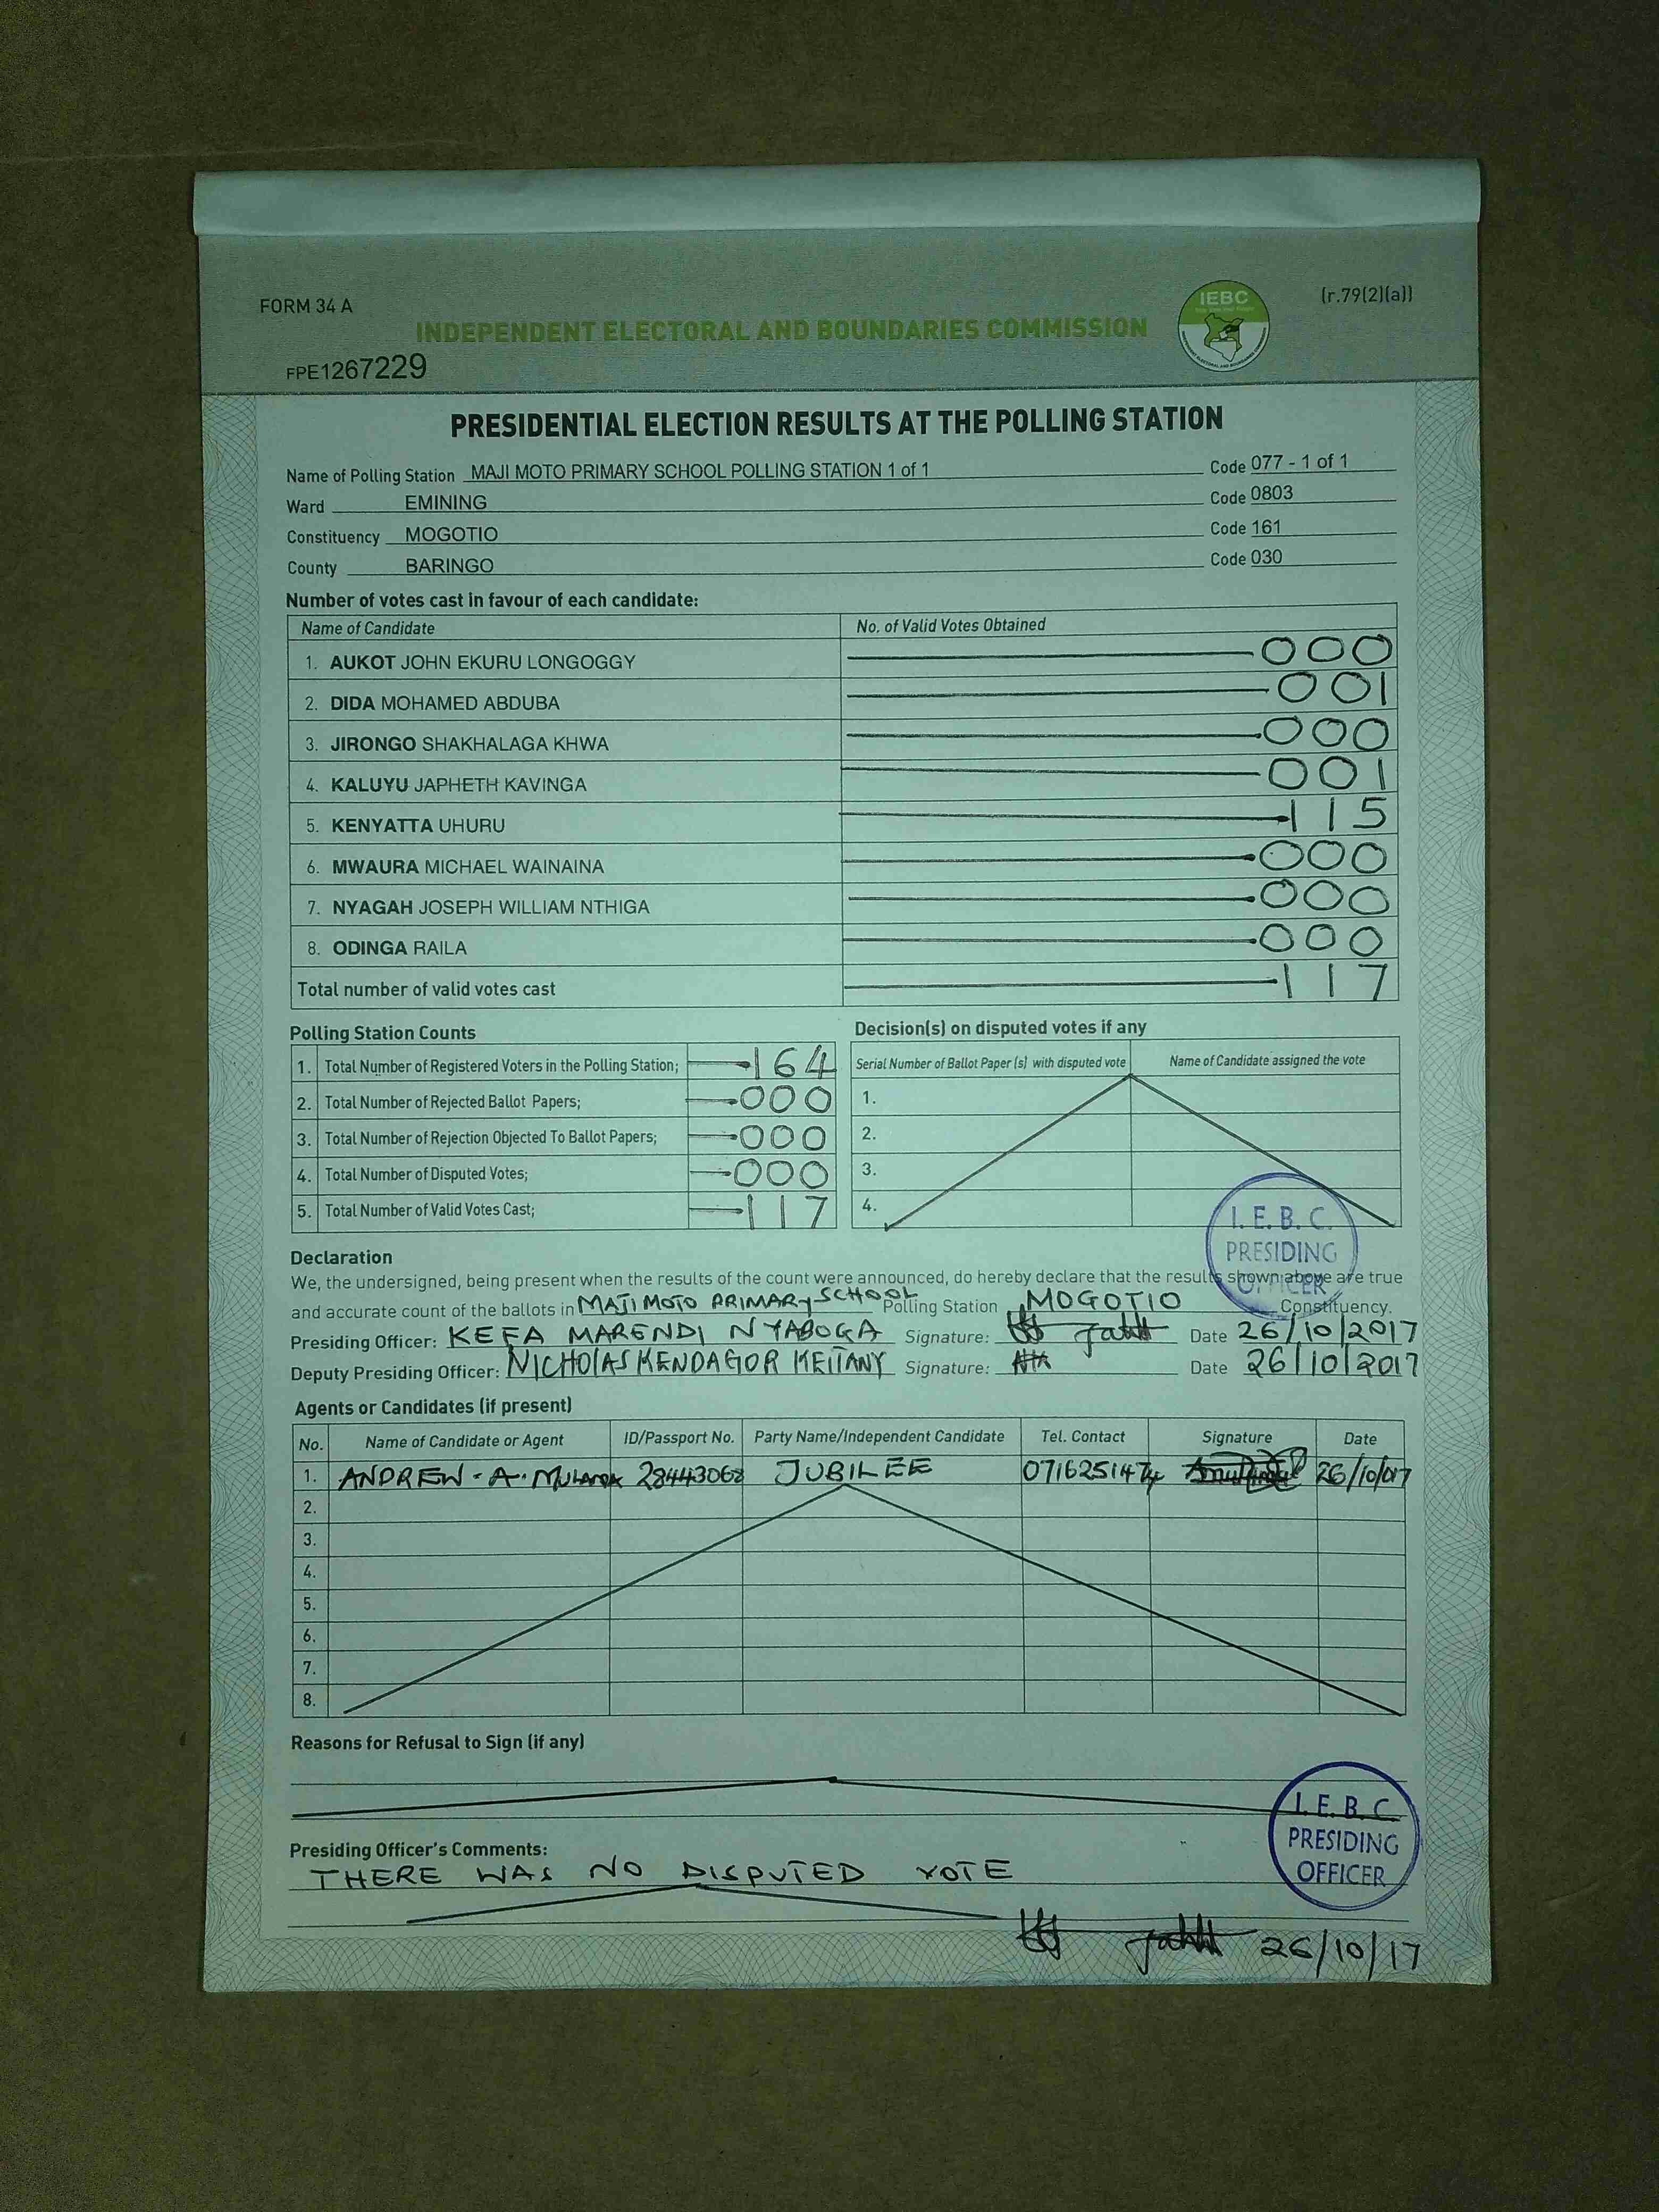 FORM 34 A
IEBC
(r.79(2)(a))
INDEPENDENT ELECTORAL AND BOUNDARIES COMMISSION
FPE1267229
PRESIDENTIAL ELECTION RESULTS AT THE POLLING STATION
Name of Polling Station MAJI MOTO PRIMARY SCHOOL POLLING STATION 1 of 1 Code 077 - 1 of 1
Ward EMINING Code 0803
Constituency MOGOTIO Code 161
County BARINGO Code 030
Number of votes cast in favour of each candidate:
Name of Candidate No. of Valid Votes Obtained
1. AUKOT JOHN EKURU LONGOGGY 000
2. DIDA MOHAMED ABDUBA 001
3. JIRONGO SHAKHALAGA KHWA 000
4. KALUYU JAPHETH KAVINGA 001
5. KENYATTA UHURU 115
6. MWAURA MICHAEL WAINAINA 000
7. NYAGAH JOSEPH WILLIAM NTHIGA 000
8. ODINGA RAILA 000
Total number of valid votes cast 117
Polling Station Counts
1. Total Number of Registered Voters in the Polling Station; 164
2. Total Number of Rejected Ballot Papers; 000
3. Total Number of Rejection Objected To Ballot Papers; 000
4. Total Number of Disputed Votes; 000
5. Total Number of Valid Votes Cast; 117
Decision(s) on disputed votes if any
Serial Number of Ballot Paper (s) with disputed vote Name of Candidate assigned the vote
1.
2.
3.
4.
I. E. B. C.
PRESIDING
OFFICER
Declaration
We, the undersigned, being present when the results of the count were announced, do hereby declare that the results shown above are true
and accurate count of the ballots in MAJI MOTO PRIMARY SCHOOL Polling Station MOGOTIO Constituency.
Presiding Officer: KEFA MARENDI NYABOGA Signature: Date 26/10/2017
Deputy Presiding Officer: NICHOLAS KENDAGOR KEITANY Signature: Date 26/10/2017
Agents or Candidates (if present)
No. Name of Candidate or Agent ID/Passport No. Party Name/Independent Candidate Tel. Contact Signature Date
1. ANDREW - A. 28443068 JUBILEE 0716251474 26/10/017
2.
3.
4.
5.
6.
7.
8.
Reasons for Refusal to Sign (if any)
I. E. B. C
PRESIDING
OFFICER
Presiding Officer's Comments:
THERE WAS NO DISPUTED VOTE
26/10/17